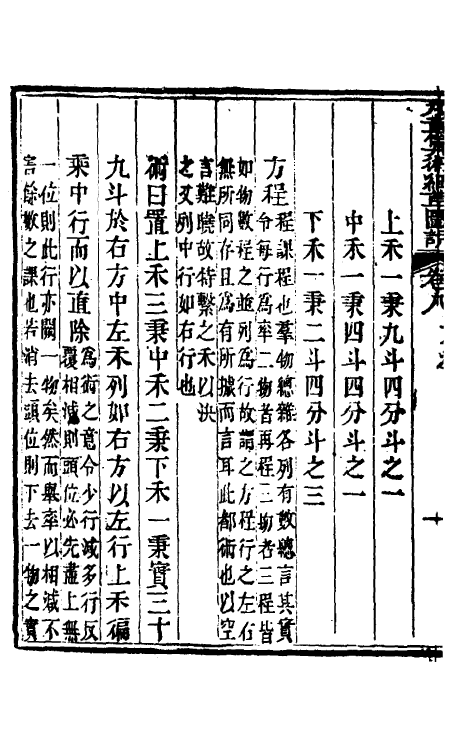 九章算術細草圖說 卷八
十
上禾一秉九斗四分斗之一
中禾一秉四斗四分斗之一
下禾一秉二斗四分斗之三
方程
程課程也羣物總雜各列有數總言其實
令每行爲率二物者再程三物者三程皆
如物數程之並列爲行故謂之方程行之左右
無所同存且爲有所據而言耳此都術也以空
言難曉故特繫之禾以決
之又列中行如右行也
術曰置上禾三秉中禾二秉下禾一秉實三十
九斗於右方中左禾列如右方以左行上禾徧
乘中行而以直除
爲術之意令少行減多行反
覆相減則頭位必先盡上無
一位則此行亦闕一物矣然而舉率以相減不
害餘數之課也若消去頭位則下去一物之實